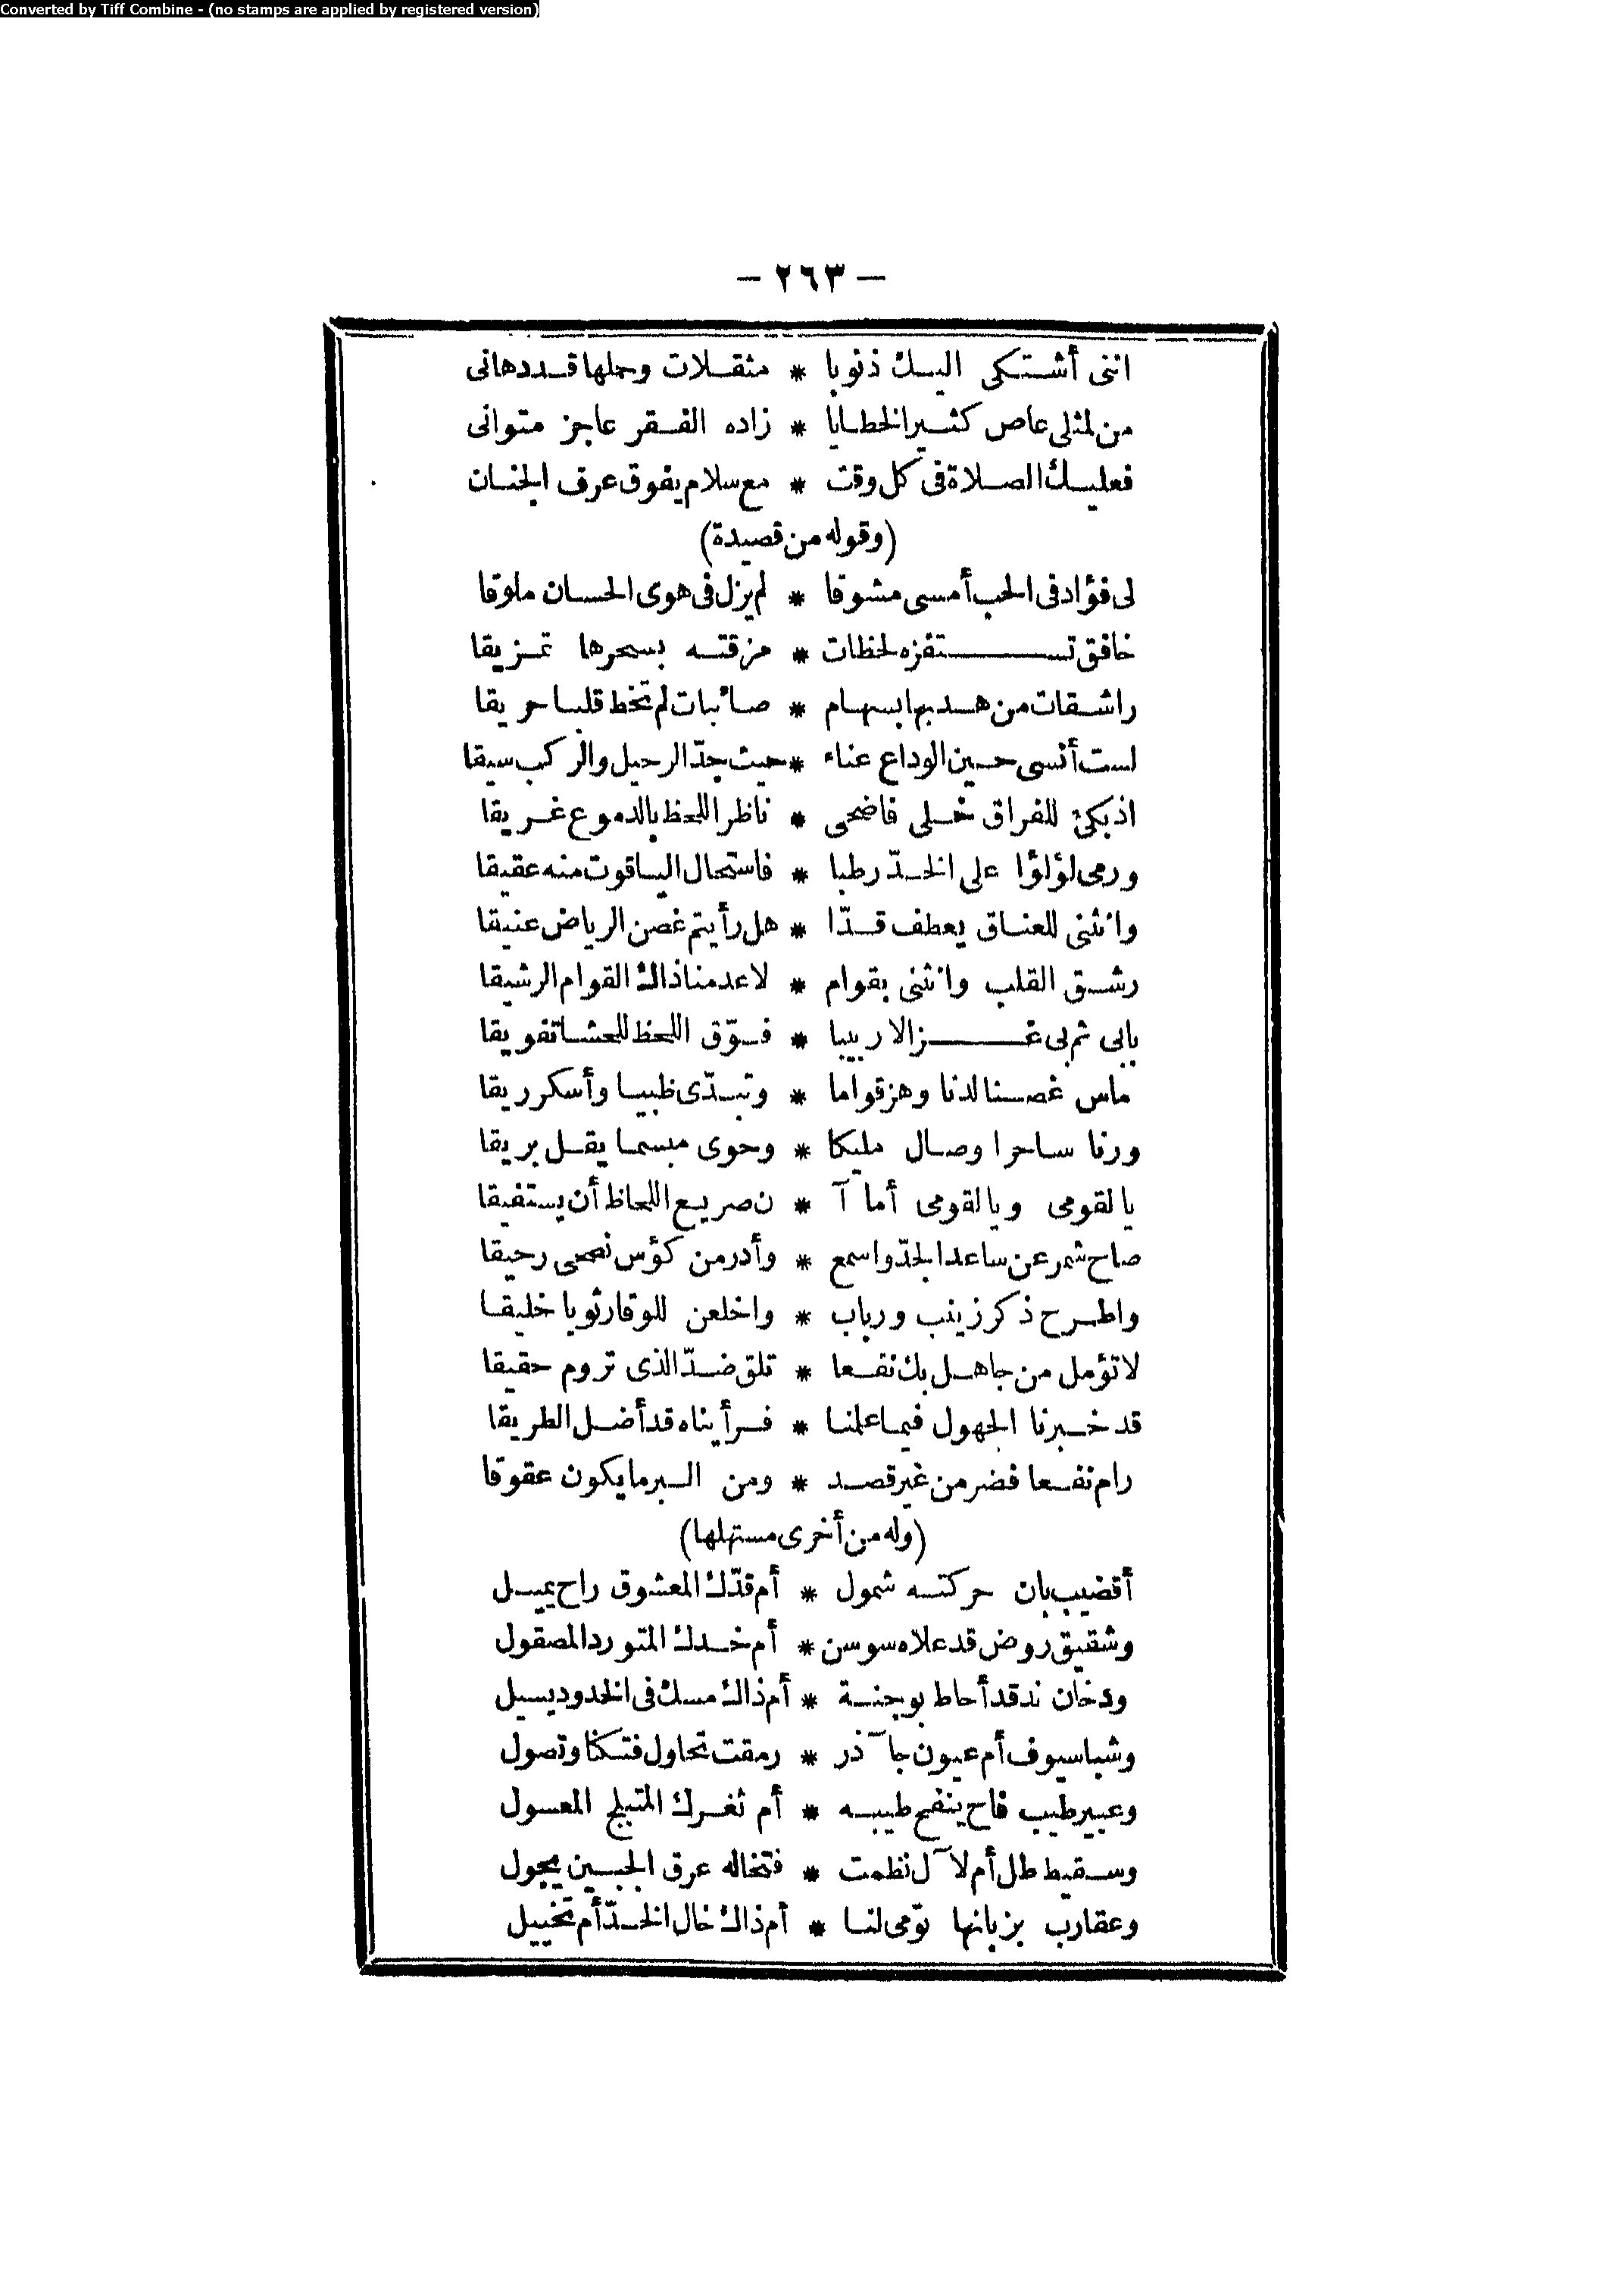 Converted by Tiff Combine - (no stamps are applied by registered version)
— ٢٦٣ —
اننى أشتكى اليك ذنوبا * مثقلات وحملها قد دهانى
من لمثلى عاص كثير الخطايا * زاده الفقر عاجز متوانى
فعليك الصلاة فى كل وقت * مع سلام يفوق عرف الجنان
(وقوله من قصيدة)
لى فؤاد فى الحب أمسى مشوقا * لم يزل فى هوى الحسان ملوقا
خافق تستفزه لحظات * مزقته بسحرها تمزيقا
راشقات من هدبها بسهام * صائبات لم تخط قلبا حريقا
لست أنسى حين الوداع عناء * حيث جدّ الرحيل والركب سيقا
اذ بكى للفراق خلى فاضحى * ناظر اللحظ بالدموع غريقا
ورمى لؤلؤا على الخدّ رطبا * فاستحال الياقوت منه عقيقا
وانثنى للعناق يعطف قدّا * هل رأيتم غصن الرياض عنيقا
رشق القلب وانثنى بقوام * لاعدمنا ذاك القوام الرشيقا
بابى ثم بى غزالا ربيبا * فوّق اللحظ للحشا تفويقا
ماس غصنا لدنا وهز قواما * وتبدّى ظبيا وأسكر ريقا
ورنا ساحرا وصال مليكا * وحوى مبسما يقل بريقا
يا لقومى ويا لقومى أما آ * ن صريع اللحاظ أن يستفيقا
صاح شمر عن ساعد الجدّ واسمع * وأدر من كؤس نصحى رحيقا
واطرح ذكر زينب ورباب * واخلعن للوقار ثوبا خليقا
لا تؤمل من جاهل بك نفعا * تلق ضدّ الذى تروم حقيقا
قد خبرنا الجهول فيما علمنا * فرأيناه قد أضل الطريقا
رام نفعا فضر من غير قصد * ومن البر ما يكون عقوقا
(وله من أخرى مستهلها)
أقضيب بان حركته شمول * أم قدّك المعشوق راح يميل
وشقيق روض قد علاه سوسن * أم خدك المتورد المصقول
ودخان ند قد أحاط بوجنة * أم ذاك مسك فى الخدود يسيل
وشبا سيوف أم عيون جآذر * رمقت تحاول فتكا وتصول
وعبير طيب فاح ينفح طيبه * أم ثغرك المتبلج المعسول
وسقيط طل أم لآل نظمت * فتخاله عرق الجبين يجول
وعقارب بزبانها تومى لنا * أم ذاك خال الخدّ أم تخييل